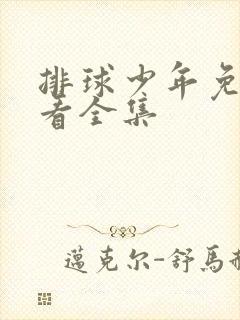 排球少年免
看全集
邁克尔-舒馬赫